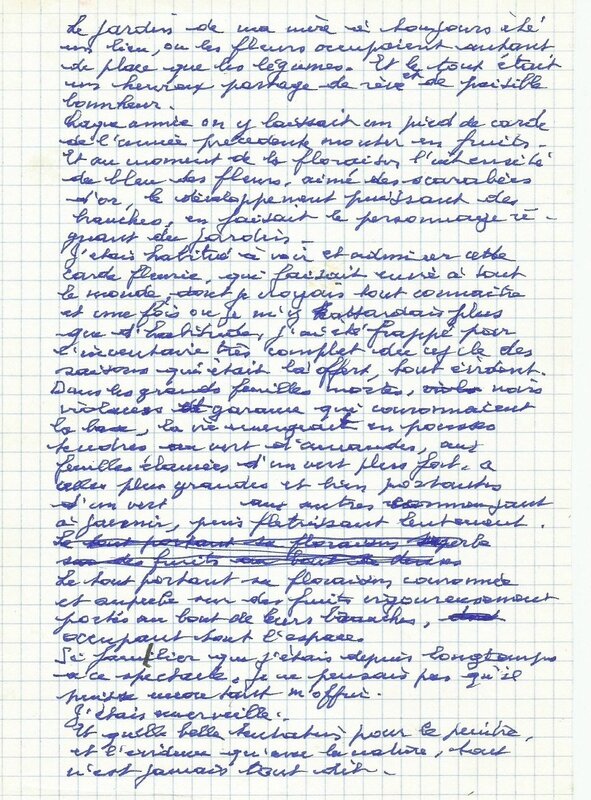 Le jardin de ma mère a toujours été
un lieu, ou les fleurs occupaient autant
de place que les légumes. Et le tout était
un heureux partage de rêve et de paisible
bonheur.
Chaque année on y laissait un pied de carde
de l'année précédente monter en fruits.
Et au moment de la floraison l'intensité
de bleu des fleurs, aimé des scarabées
d'or, le développement puissant des
branches, en faisait le personnage ré-
gnant du jardin.
J'étais habitué à voir et admirer cette
carde fleurie, qui faisait envie à tout
le monde, dont je croyais tout connaître
et une fois ou je m'y attardais plus
que d'habitude, j'ai été frappé par
l'inventaire très complet du cycle des
saisons qui était là offert, tout évident.
Dans les grandes feuilles mortes, noirs
violaces et garance qui couronnaient
la base, la vie surgissait en pousses
tendres au vert d'amandes, aux
feuilles élancées d'un vert plus fort, a
plus grandes et bien portantes
d'un vert aux autres commençant
à jaunir, puis fletrissant lentement.
Le tout portant sa floraison superbe
sur des fruits au bout de
Le tout portant sa floraison couronnée
et superbe sur des fruits vigoureusement
portés au bout de leurs branches,
occupant tout l'espace
Si familier que j'étais depuis longtemps
a ce spectacle, je ne pensais pas qu'il
puisse encore tant m'offrir.
J'étais emerveillé.
Et quelle belle tentation pour le peintre,
et l'évidence qu'avec la nature, tout
n'est jamais tout dit.